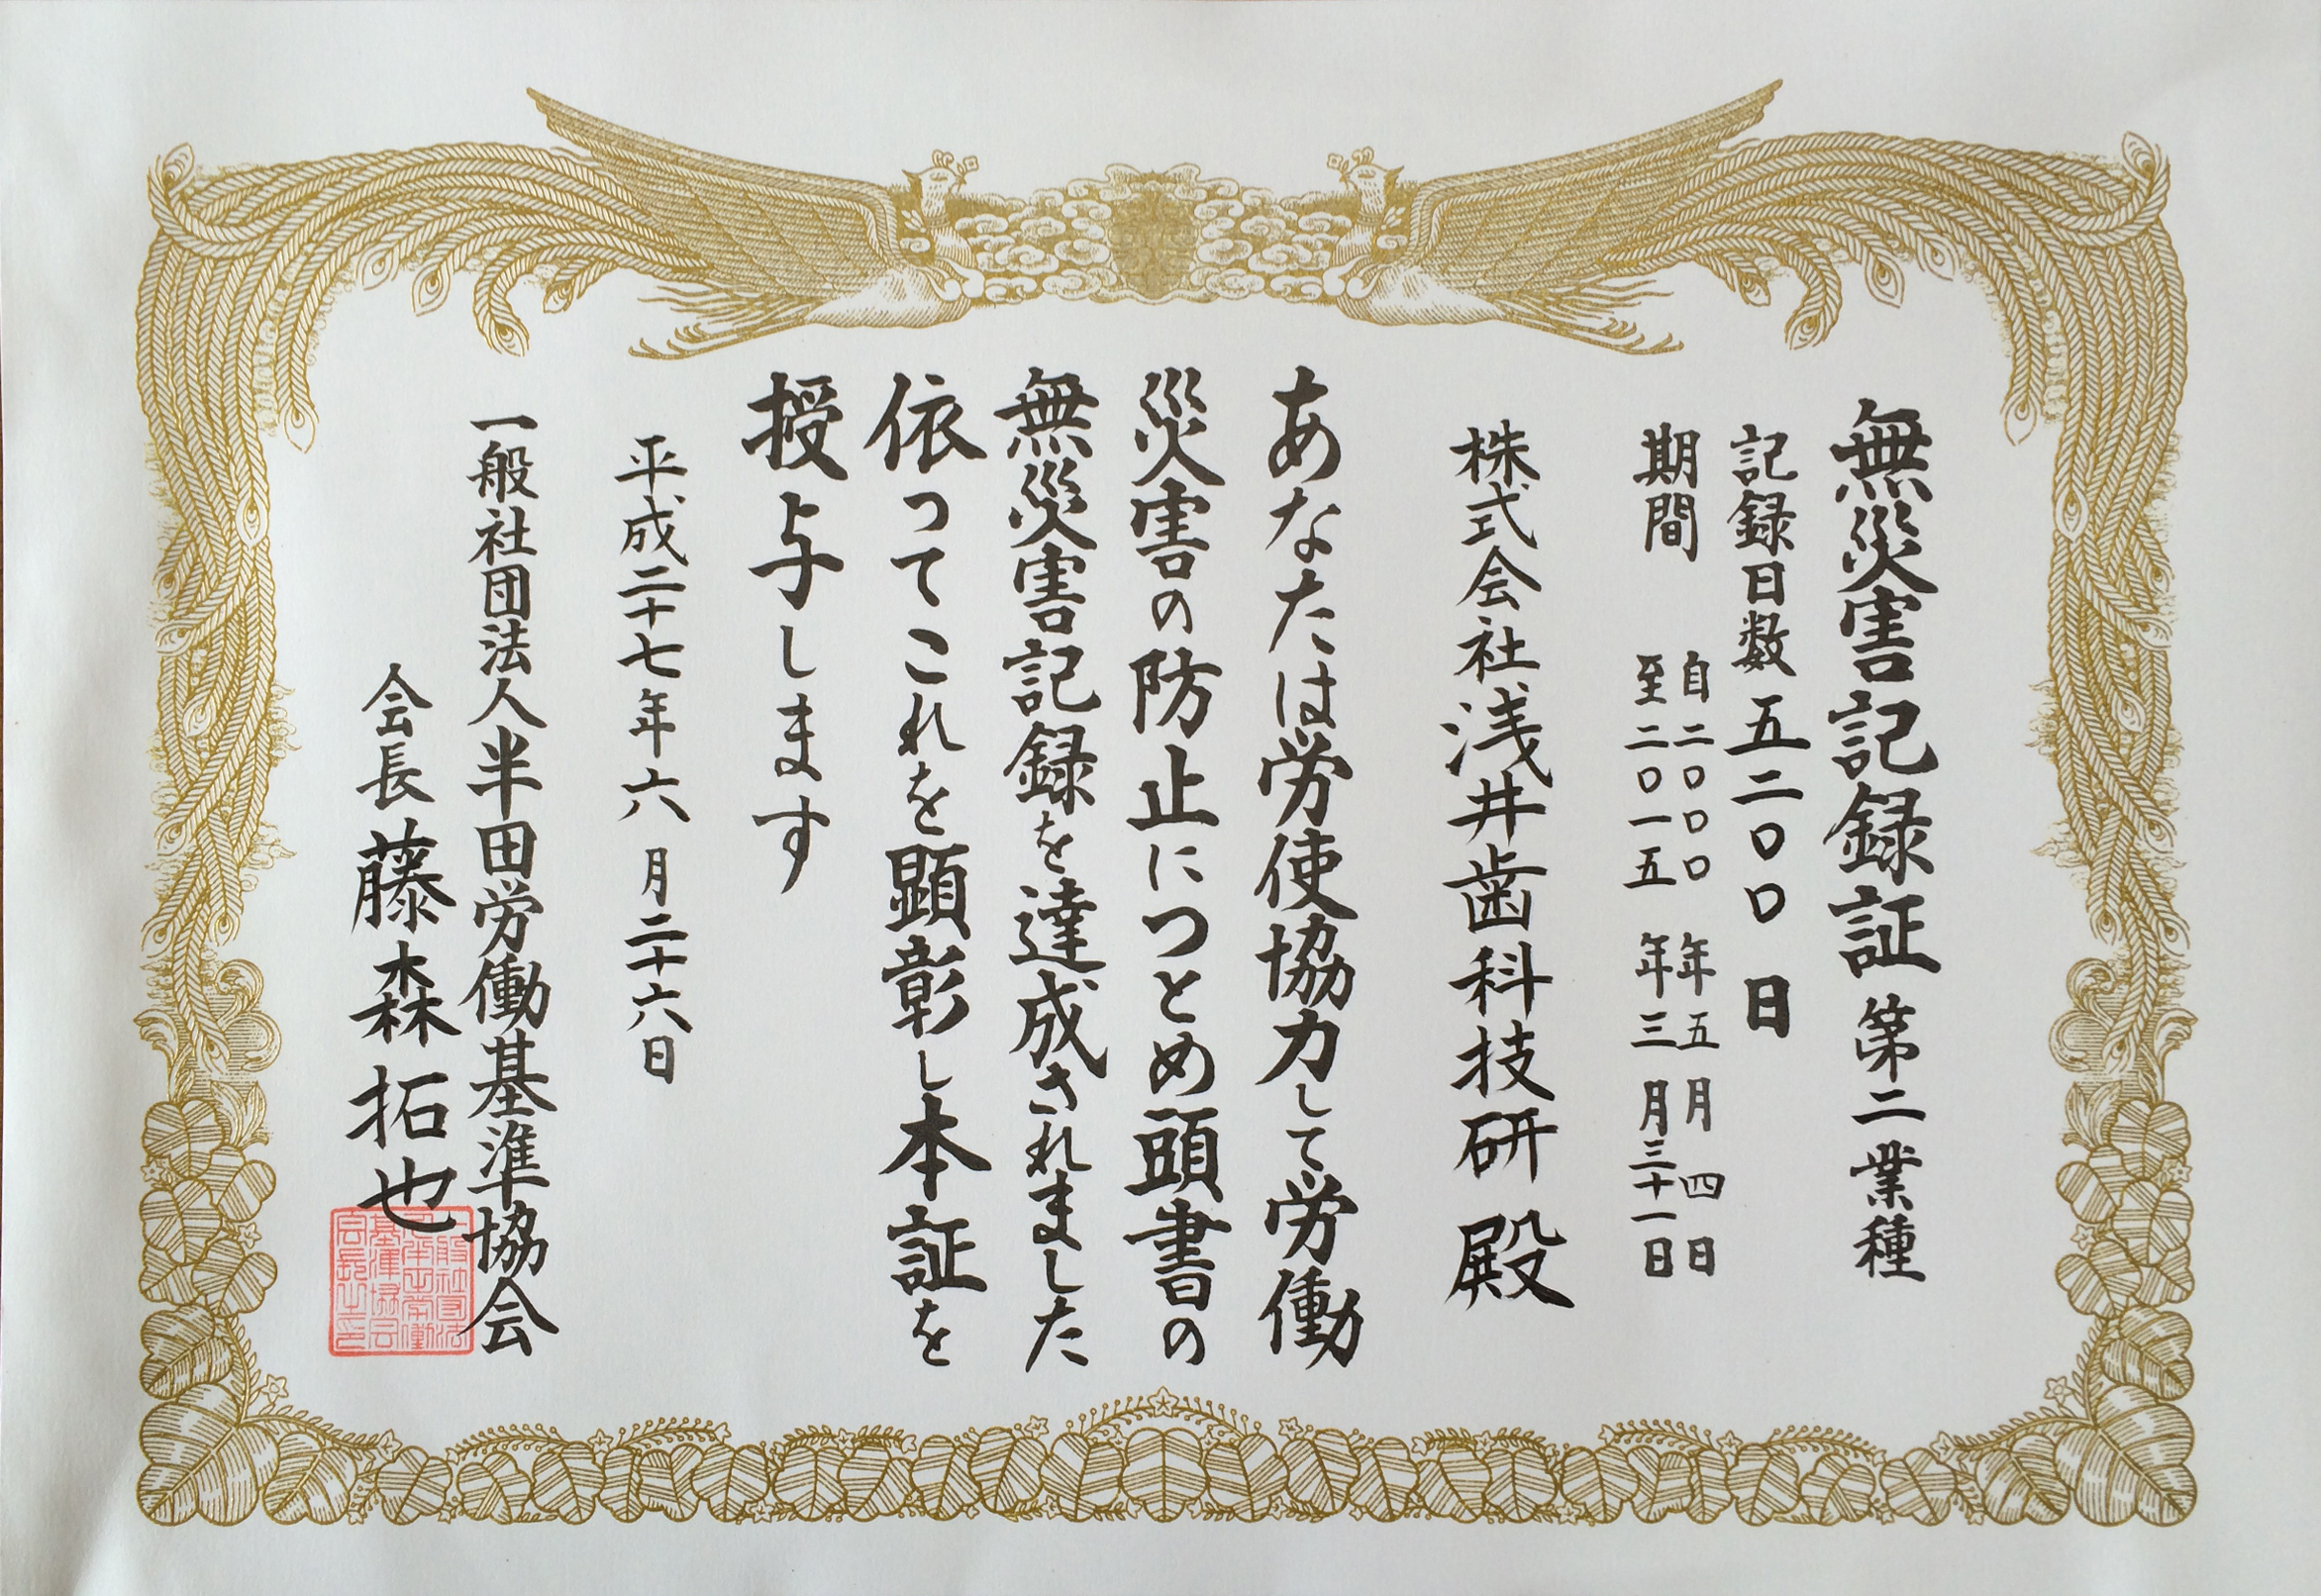 無災害記録証 第二業種
記録日数 五二〇〇日
期間 自二〇〇〇年五月四日
至二〇一五年三月三十一日
株式会社浅井歯科技研 殿
あなたは労使協力して労働
災害の防止につとめ頭書の
無災害記録を達成されました
依ってこれを顕彰し本証を
授与します
平成二十七年六月二十六日
一般社団法人半田労働基準協会
会長 藤森拓也
一般社団法
人半田労働
基準協会
会長之印